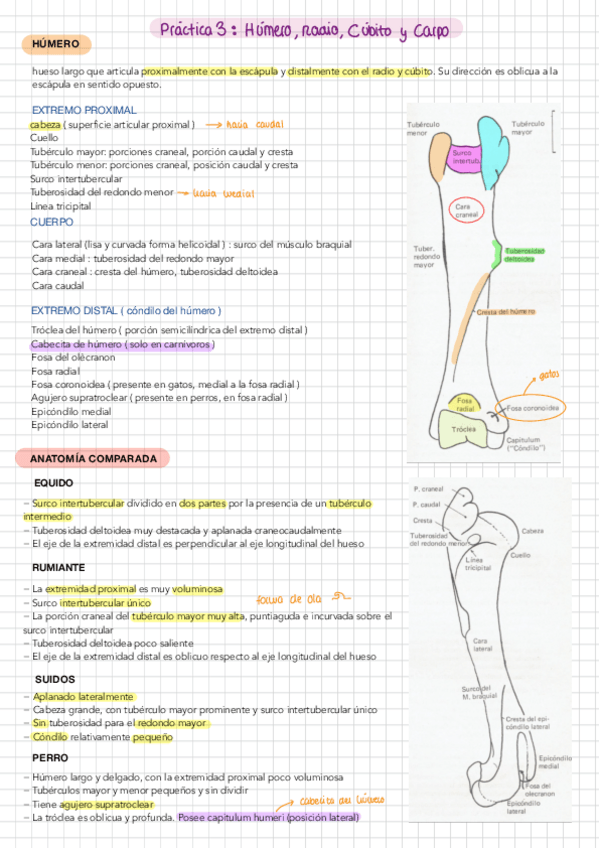 Práctica 3: Húmero, radio, Cúbito y Carpo
HÚMERO
hueso largo que articula proximalmente con la escápula y distalmente con el radio y cúbito. Su dirección es oblicua a la
escápula en sentido opuesto.
EXTREMO PROXIMAL
cabeza ( superficie articular proximal ) → hacia caudal
Cuello
Tubérculo mayor: porciones craneal, porción caudal y cresta
Tubérculo menor: porciones craneal, posición caudal y cresta
Surco intertubercular
Tuberosidad del redondo menor → hacia medial
Línea tricipital
CUERPO
Cara lateral (lisa y curvada forma helicoidal ) : surco del músculo braquial
Cara medial : tuberosidad del redondo mayor
Cara craneal : cresta del húmero, tuberosidad deltoidea
Cara caudal
EXTREMO DISTAL ( cóndilo del húmero )
Tróclea del húmero ( porción semicilíndrica del extremo distal )
Cabecita de húmero ( solo en carnívoros )
Fosa del olécranon
Fosa radial
Fosa coronoidea ( presente en gatos, medial a la fosa radial )
Agujero supratroclear ( presente en perros, en fosa radial )
Epicóndilo medial
Epicóndilo lateral
Tubérculo
menor
Tubérculo
mayor
Surco
intertub.
Cara
craneal
Tuber.
redondo
mayor
Tuberosidad
deltoidea
Cresta del húmero
gatos
Fosa
radial
Fosa coronoidea
Tróclea
Capitulum
("Cóndilo")
ANATOMÍA COMPARADA
EQUIDO
– Surco intertubercular dividido en dos partes por la presencia de un tubérculo
intermedio
– Tuberosidad deltoidea muy destacada y aplanada craneocaudalmente
– El eje de la extremidad distal es perpendicular al eje longitudinal del hueso
RUMIANTE
– La extremidad proximal es muy voluminosa
– Surco intertubercular único
forma de ola
– La porción craneal del tubérculo mayor muy alta, puntiaguda e incurvada sobre el
surco intertubercular
– Tuberosidad deltoidea poco saliente
– El eje de la extremidad distal es oblicuo respecto al eje longitudinal del hueso
SUIDOS
– Aplanado lateralmente
– Cabeza grande, con tubérculo mayor prominente y surco intertubercular único
– Sin tuberosidad para el redondo mayor
– Cóndilo relativamente pequeño
PERRO
– Húmero largo y delgado, con la extremidad proximal poco voluminosa
– Tubérculos mayor y menor pequeños y sin dividir
– Tiene agujero supratroclear
→ cabecita del húmero
– La tróclea es oblicua y profunda. Posee capitulum humeri (posición lateral)
P. craneal
P. caudal
Cresta
Tuberosidad
del redondo menor
Cabeza
Cuello
Línea
tricipital
Cara
lateral
Surco del
M. braquial
Cresta del epi-
cóndilo lateral
Epicóndilo
medial
Fosa del
olecranon
Epicóndilo
lateral